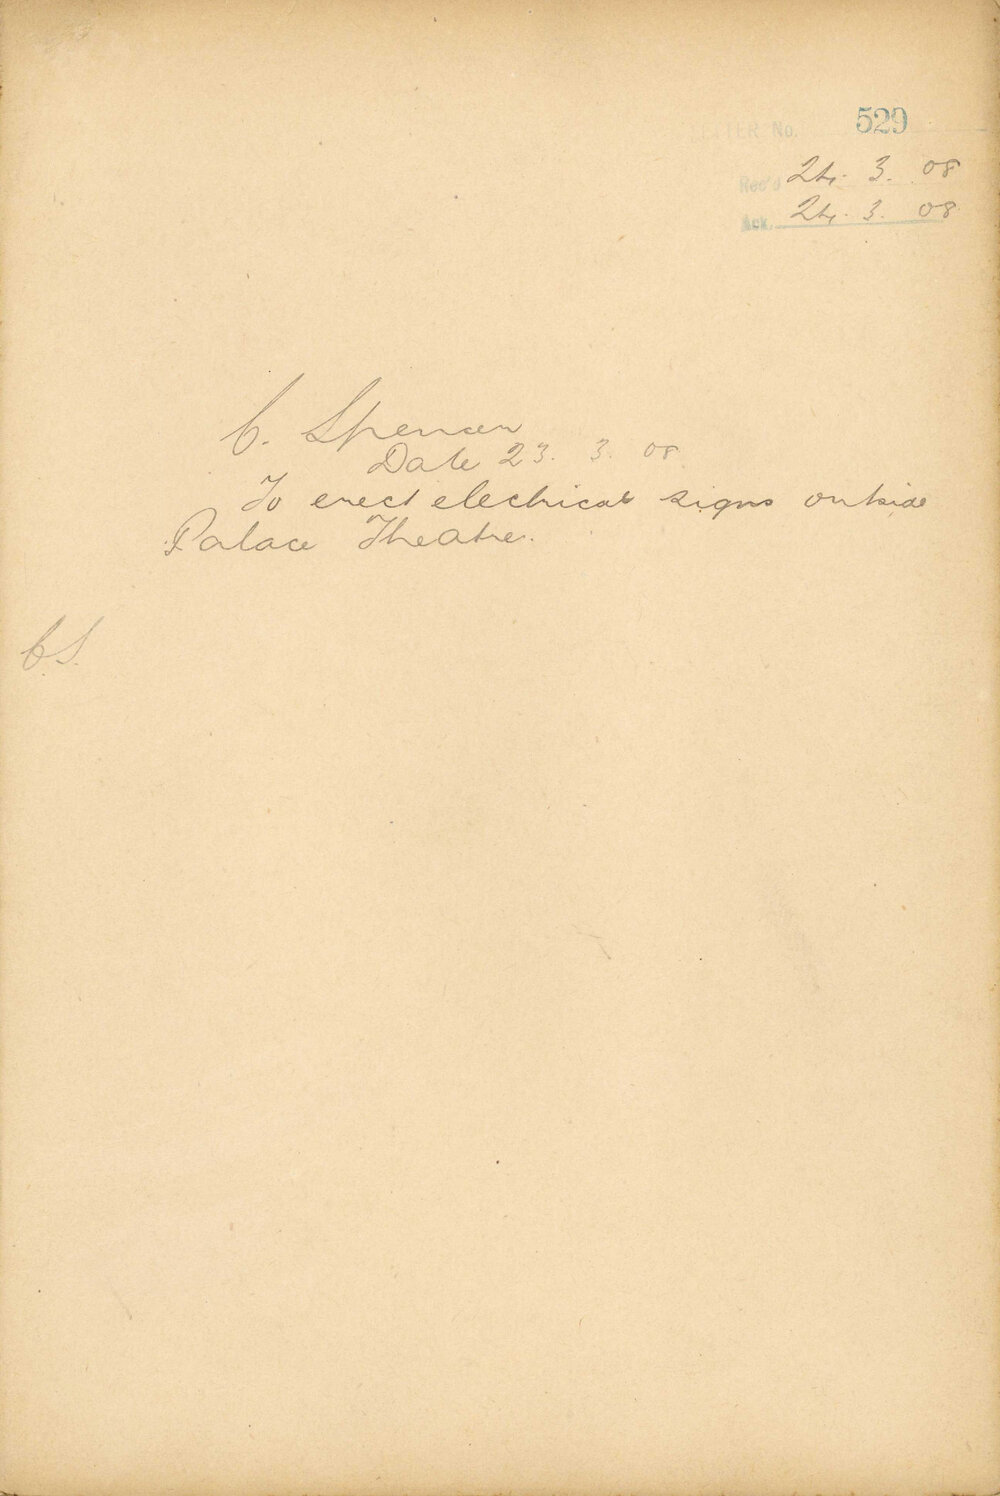 LETTER No. 529
Rec'd 24. 3. 08
Ack. 24. 3. 08
C. Spencer
Date 23. 3. 08
To erect electrical signs outside
Palace Theatre.
CS.